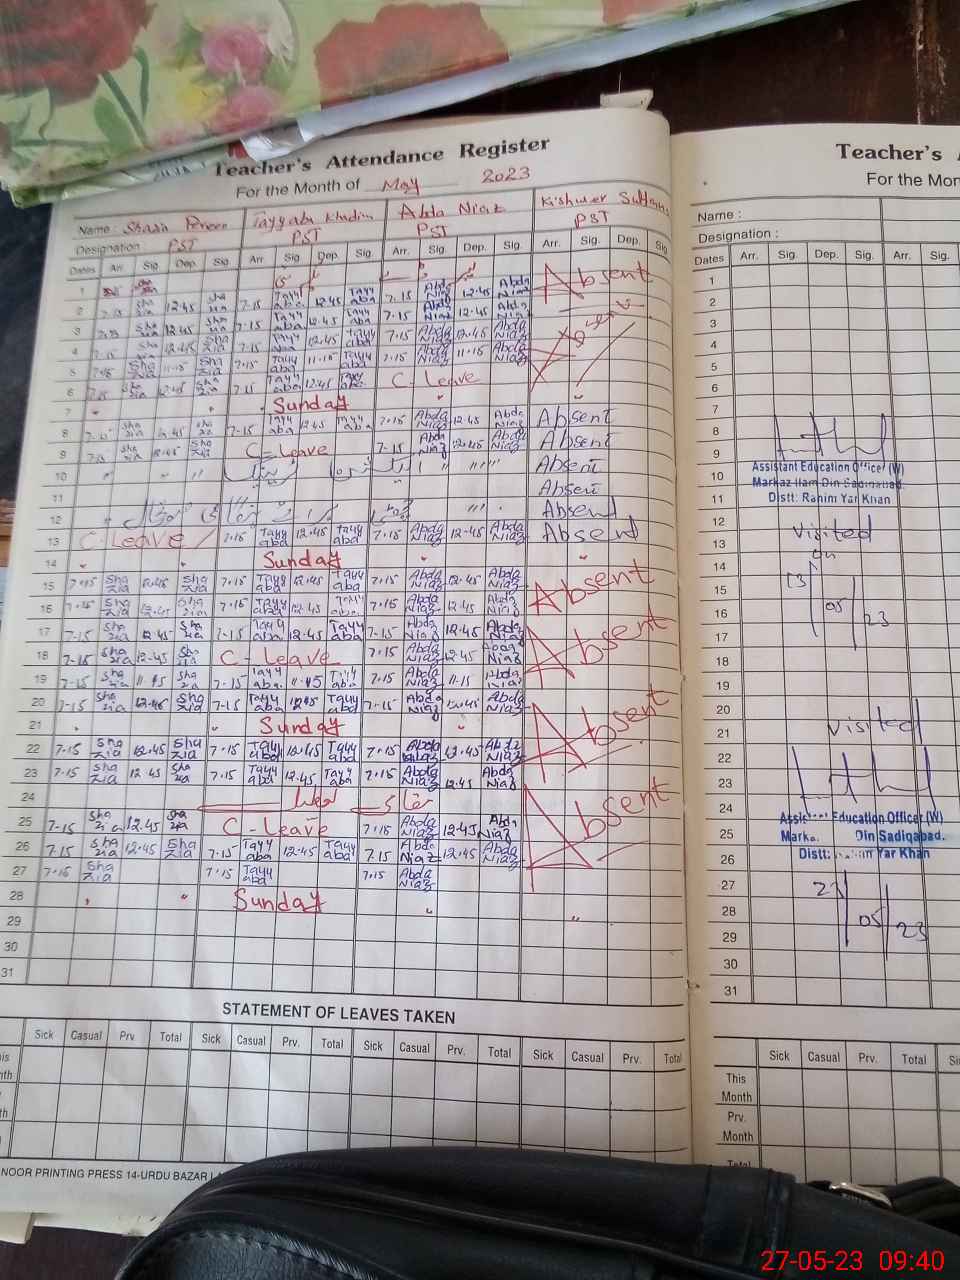 Teacher's Attendance Register
For the Month of May 2023
Name : Shazia Perveen Tayyaba Khadim Abda Niaz Kishwer Sultana
Designation PST PST PST PST
Dates Arr. Sig. Dep. Sig. Arr. Sig. Dep. Sig. Arr. Sig. Dep. Sig. Arr. Sig. Dep. Sig
1 Absent
2 7.15 Sha zia 12.45 Sha zia 7.15 Tayy aba 12.45 Tayy aba 7.15 Abda Niaz 12.45 Abda Niaz
3 Sha zia 12.45 Sha zia 7.15 Tayy aba 12.45 Tayy aba 7.15 Abda Niaz 12.45 Abda Niaz Absent
4 7.15 Sha zia 12.45 Sha zia 7.15 Tayy aba 12.45 Tayy aba 7.15 Abda Niaz 12.45 Abda Niaz
5 Sha zia 11.15 Sha zia 7.15 Tayy aba 11.15 Tayy aba 7.15 Abda Niaz 11.15 Abda Niaz
6 7.15 Sha zia 12.45 Sha zia 7.15 Tayy aba 12.45 Tayy aba C-Leave
7 " " Sunday " "
8 7.15 Sha zia 12.45 Sha zia 7.15 Tayy aba 12.45 Tayy aba 7.15 Abda Niaz 12.45 Abda Niaz Absent
9 7.15 Sha zia 12.45 Sha zia C-Leave 7.15 Abda Niaz 12.45 Abda Niaz Absent
10 Absent
11 Absent
12 Absent
13 C-Leave 7.15 Tayy aba 12.45 Tayy aba 7.15 Abda Niaz 12.45 Abda Niaz Absent
14 " " Sunday " "
15 7.15 Sha zia 12.45 Sha zia 7.15 Tayy aba 12.45 Tayy aba 7.15 Abda Niaz 12.45 Abda Niaz Absent
16 7.15 Sha zia 12.45 Sha zia 7.15 Tayy aba 12.45 Tayy aba 7.15 Abda Niaz 12.45 Abda Niaz
17 7-15 Sha zia 12.45 Sha zia 7-15 Tayy aba 12.45 Tayy aba 7-15 Abda Niaz 12.45 Abda Niaz Absent
18 7-15 Sha zia 12-45 Sha zia C-Leave 7.15 Abda Niaz 12.45 Abda Niaz
19 7-15 Sha zia 11.15 Sha zia 7-15 Tayy aba 11.15 Tayy aba 7.15 Abda Niaz 11.15 Abda Niaz
20 7-15 Sha zia 12.45 Sha zia 7-15 Tayy aba 12.45 Tayy aba 7-15 Abda Niaz 12.45 Abda Niaz Absent
21 " " Sunday "
22 7.15 Sha zia 12.45 Sha zia 7.15 Tayy aba 12.45 Tayy aba 7.15 Abda Niaz 12.45 Abda Niaz
23 7.15 Sha zia 12.45 Sha zia 7.15 Tayy aba 12.45 Tayy aba 7.15 Abda Niaz 12.45 Abda Niaz
24 Absent
25 7.15 Sha zia 12.45 Sha zia C-Leave 7.15 Abda Niaz 12.45 Abda Niaz
26 7.15 Sha zia 12.45 Sha zia 7.15 Tayy aba 12.45 Tayy aba 7.15 Abda Niaz 12.45 Abda Niaz
27 7.15 Sha zia 7.15 Tayy aba 7.15 Abda Niaz
28 " " Sunday " "
29
30
31
STATEMENT OF LEAVES TAKEN
Sick Casual Prv. Total Sick Casual Prv. Total Sick Casual Prv. Total Sick Casual Prv. Total
NOOR PRINTING PRESS 14-URDU BAZAR
Teacher's
For the Mon
Name :
Designation :
Dates Arr. Sig. Dep. Sig. Arr. Sig.
1
2
3
4
5
6
7
8
9
Assistant Education Officer (W)
10 Markaz Ilam Din Sadiqabad.
11 Distt: Rahim Yar Khan
12 Visited
13 on
14
15 13/05/23
16
17
18
19
20
21 Visited
22
23
24
Assistant Education Officer (W)
25 Marka Din Sadiqabad.
26 Distt: Rahim Yar Khan
27
28 27/05/23
29
30
31
Sick Casual Prv. Total
This Month
Prv. Month
Total
27-05-23 09:40